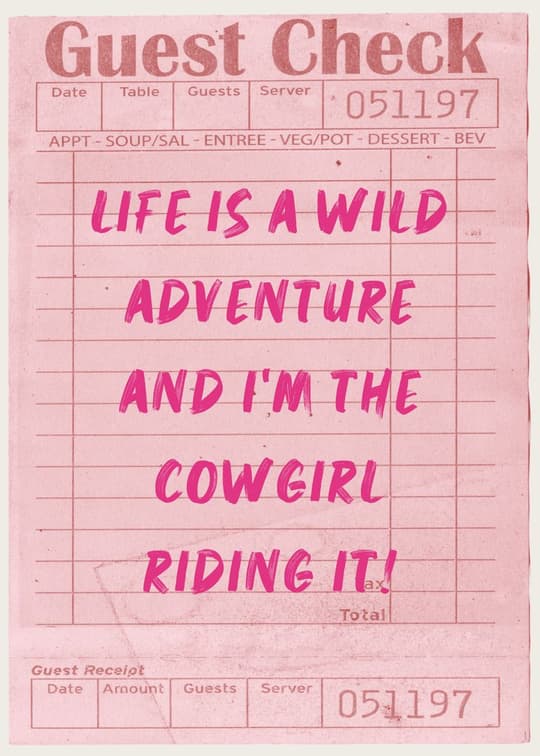 Guest Check
Date Table Guests Server 051197
APPT - SOUP/SAL - ENTREE - VEG/POT - DESSERT - BEV
LIFE IS A WILD
ADVENTURE
AND I'M THE
COWGIRL
RIDING IT!
ax
Total
Guest Receipt
Date Amount Guests Server 051197